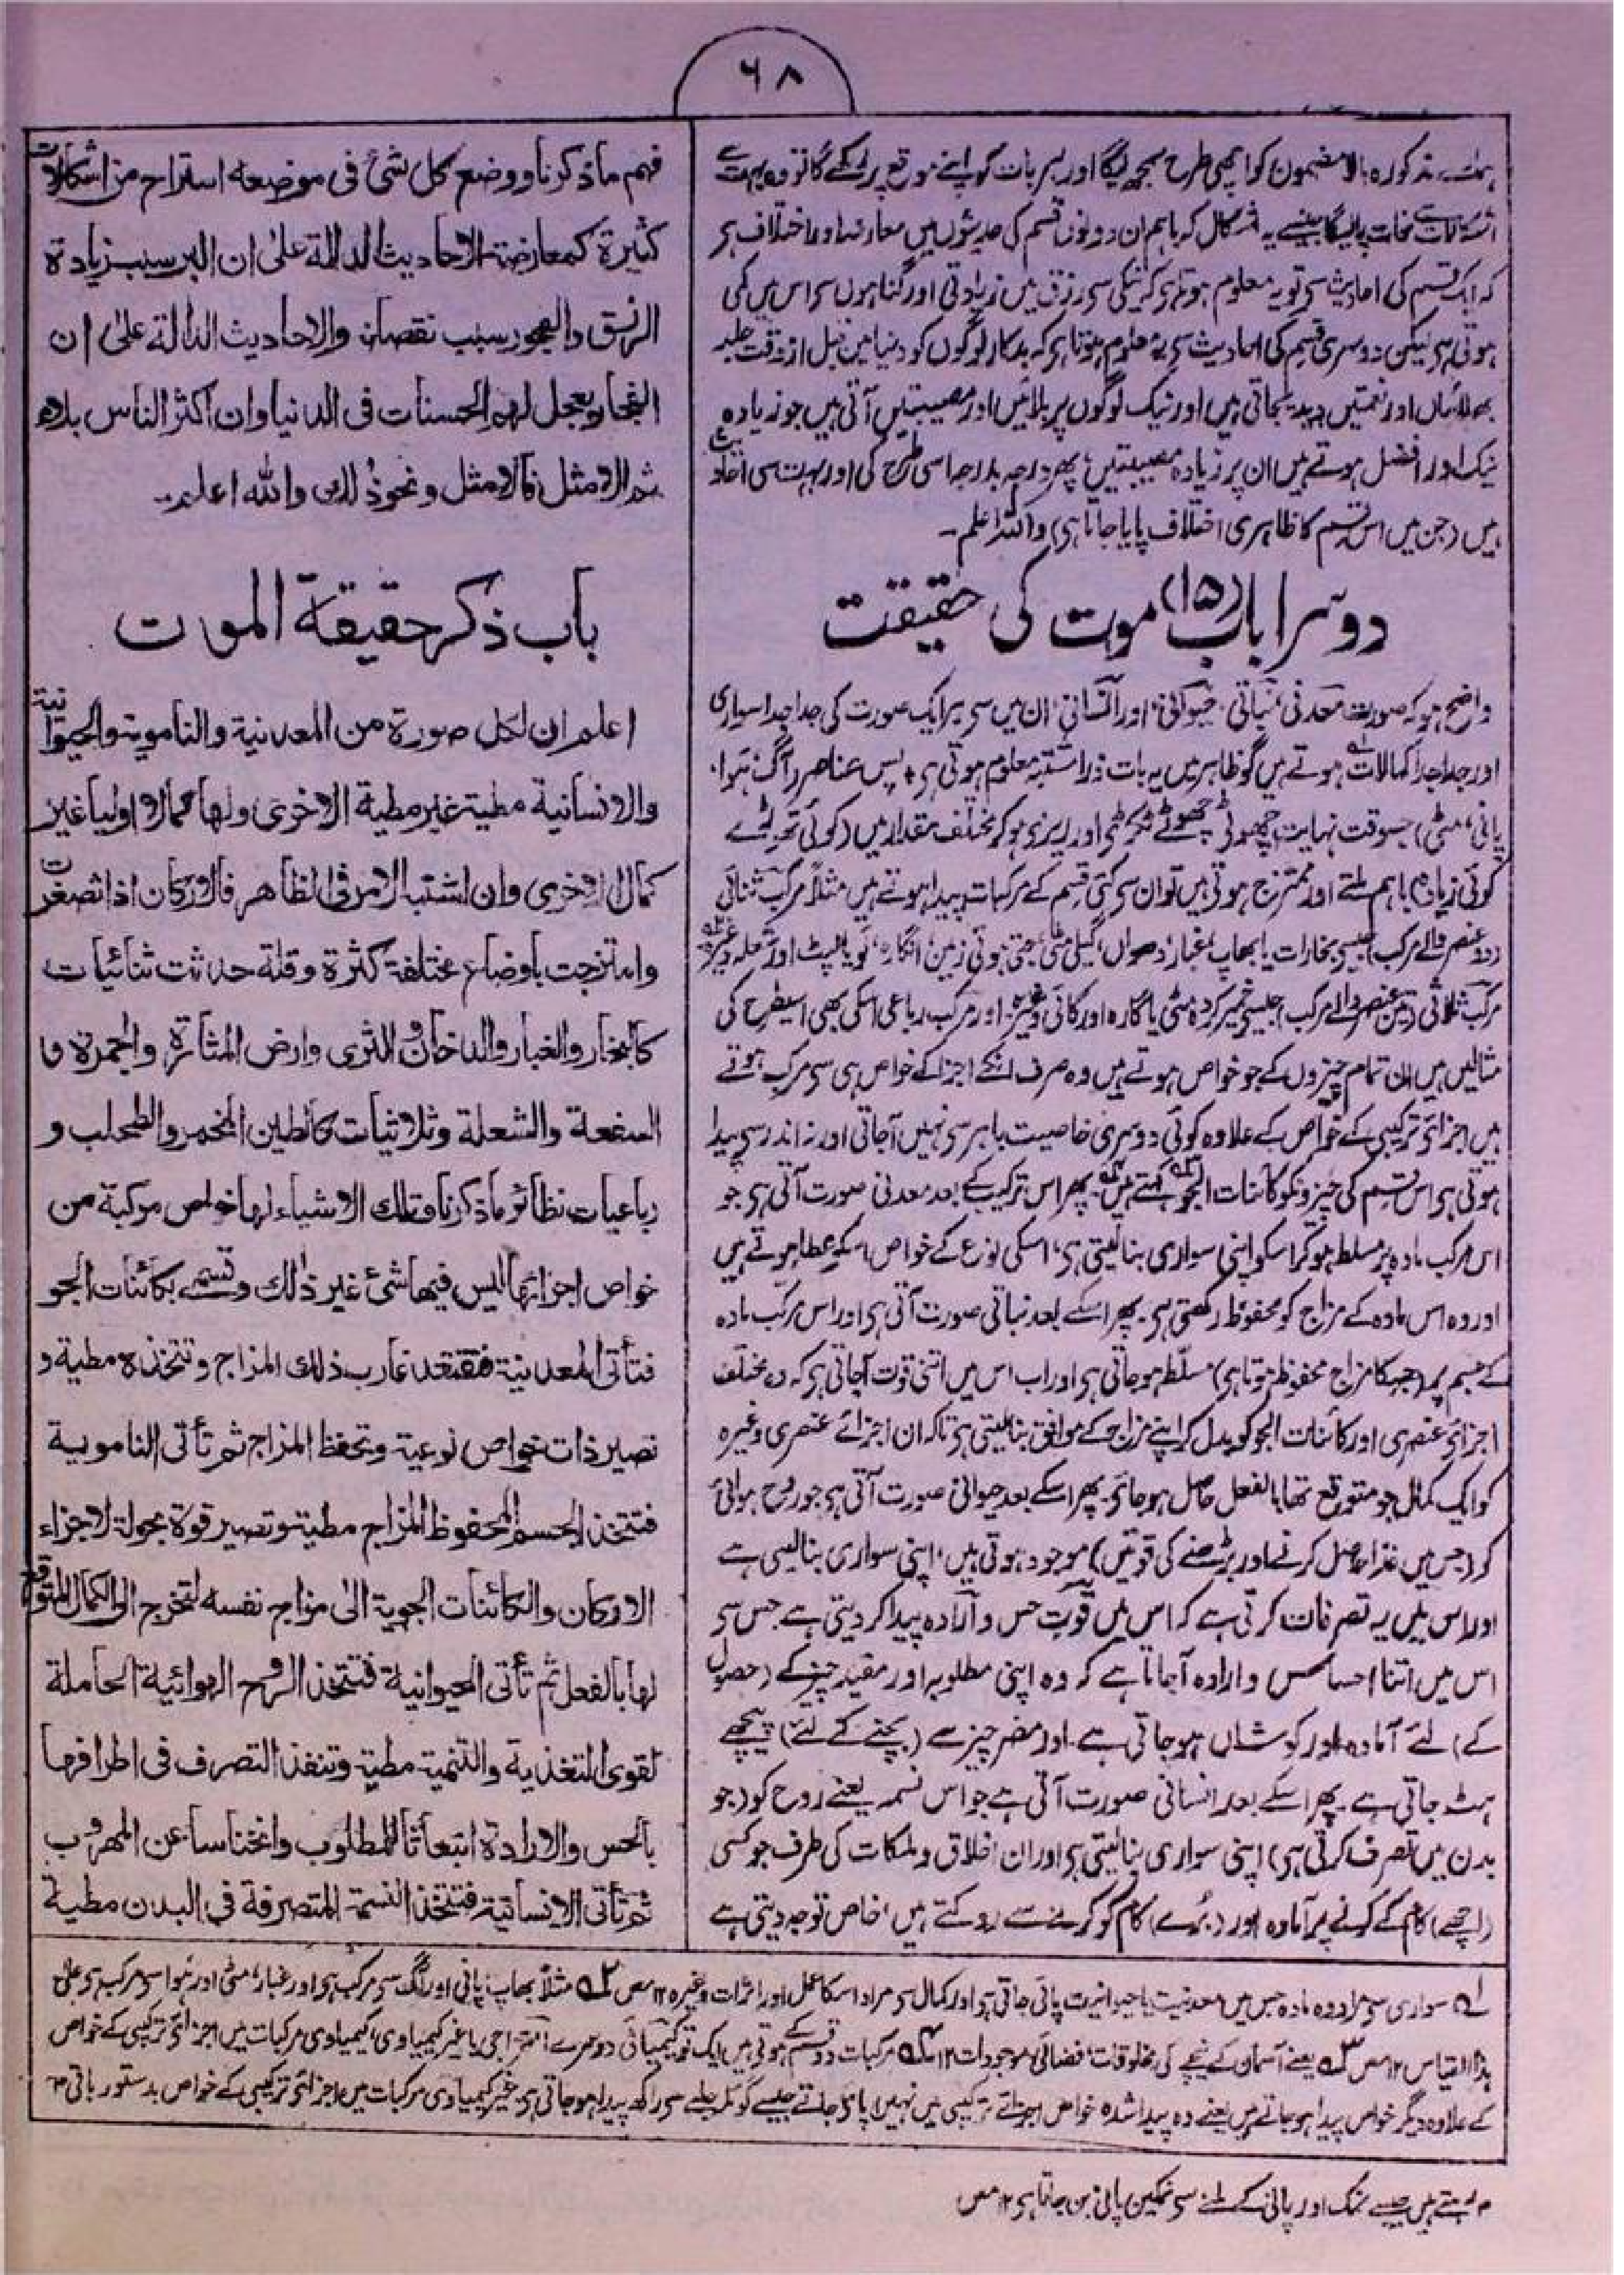 ۶۸
ہمارے مذکورہ بالا مضمون کو اچھی طرح سمجھ لیگا اور ہر بات کو اپنے موقع پر رکھے گا تو وہ بہت سے
اشکالات سے نجات پالیگا جیسے یہ اشکال کہ باہم ان دونوں قسم کی حدیثوں میں معارضہ اور اختلاف ہی
کہ ایک قسم کی احادیث سی تو یہ معلوم ہوتا ہی کہ نیکی سی رزق میں زیادتی اور گناہوں سی اس میں کمی
ہوتی ہی لیکن دوسری قسم کی احادیث سی یہ معلوم ہوتا ہی کہ بدکار لوگوں کو دنیا میں قبل از وقت جلد
بھلائیاں اور نعمتیں دیدیجاتی ہیں اور نیک لوگوں پر بلائیں اور مصیبتیں آتی ہیں جو زیادہ
نیک اور افضل ہوتے ہیں ان پر زیادہ مصیبتیں، پھر درجہ بدرجہ اسی طرح کی اور بہت سی احادیث
ہیں (جن میں اس قسم کا ظاہری اختلاف پایا جاتا ہی) واللہ اعلم۔
دوسرا باب (۱۵) موت کی حقیقت
واضح ہو کہ صورت معدنی، نباتی، حیوانی، اور انسانی، ان میں سی ہر ایک صورت کی جدا جدا سواری
اور جدا جدا کمالات ہوتے ہیں گو ظاہر میں یہ بات ذرا مشتبہ معلوم ہوتی ہی، پس عناصر (آگ، ہوا،
پانی، مٹی) جسوقت نہایت چھوٹی چھوٹے ٹکڑی اور ریزی ہو کر مختلف مقدار میں (کوئی تھوڑے
کوئی زیادہ) باہم ملتے اور ممتزج ہوتی ہیں تو ان سی کئی قسم کے مرکبات پیدا ہوتے ہیں مثلاً مرکب ثنائی
(دو عنصر والے مرکب) جیسی بخارات یا بھاپ، غبار، دھواں، گیلی مٹی، جتی ہوئی زمین، انگارہ، لو یا لپٹ اور شعلہ وغیرہ
مرکب ثلاثی (تین عنصر والے مرکب) جیسی خمیر کردہ مٹی یا گارہ اور کائی وغیرہ، اور مرکب رباعی اسکی بھی اسیطرح کی
مثالیں ہیں ان تمام چیزوں کے جو خواص ہوتے ہیں وہ صرف انکے اجزا کے خواص ہی سی مرکب ہوتے
ہیں اجزائی ترکیبی کے خواص کے علاوہ کوئی دوسری خاصیت باہر سی نہیں آجاتی اور نہ اندر سی پیدا
ہوتی ہی اس قسم کی چیزونکو کائنات الجو کہتے ہیں۔ پھر اس ترکیب کے بعد معدنی صورت آتی ہی جو
اس مرکب مادہ پر مسلط ہو کر اسکو اپنی سواری بنا لیتی ہی، اسکی نوع کے خواص اسکو عطا ہوتے ہیں
اور وہ اس مادہ کے مزاج کو محفوظ رکھتی ہی۔ پھر اسکے بعد نباتی صورت آتی ہی اور اس مرکب مادہ
کے جسم پر (جسکا مزاج محفوظ ہوتا ہی) مسلط ہو جاتی ہی اور اب اس میں اتنی قوت آجاتی ہی کہ وہ مختلف
اجزائی عنصری اور کائنات الجو کو بدل کر اپنے مزاج کے موافق بنا لیتی ہی تاکہ ان اجزائے عنصری وغیرہ
کو ایک کمال جو متوقع تھا بالفعل حاصل ہو جائے، پھر اسکے بعد حیوانی صورت آتی ہی جو روح ہوائی
کو (جس میں غذا حاصل کرنے اور بڑھنے کی قوتیں) موجود ہوتی ہیں، اپنی سواری بنا لیتی ہے
اور اس میں یہ تصرفات کرتی ہے کہ اس میں قوت حس و ارادہ پیدا کر دیتی ہے جس سی
اس میں اتنا احساس) و ارادہ آجاتا ہے کہ وہ اپنی مطلوبہ اور مفید چیز کے (حصول
کے) لئے آمادہ اور کوشاں ہو جاتی ہے۔ اور مضر چیز سے (بچنے کے لئے) پیچھے
ہٹ جاتی ہے۔ پھر اسکے بعد انسانی صورت آتی ہے جو اس نسمہ یعنے روح کو (جو
بدن میں تصرف کرتی ہی) اپنی سواری بنا لیتی ہی اور ان اخلاق و ملکات کی طرف جو کسی
(اچھے) کام کے کرنے پر آمادہ اور (بُرے) کام کو کرنے سے روکتے ہیں، خاص توجہ دیتی ہے
فہم ما ذکرنا ووضع کل شئ فی موضعہ استراح من اشکالات
کثیرۃ کمعارضۃ الاحادیث الدالۃ علیٰ ان البر سبب زیادۃ
الرزق والفجور سبب نقصانہ والاحادیث الدالۃ علیٰ ان
الفجار یعجل لھم الحسنات فی الدنیا وان اکثر الناس بلاء
ثم الامثل فالامثل ونحو ذلک واللہ اعلم۔
باب ذکر حقیقۃ الموت
اعلم ان لکل صورۃ من المعدنیۃ والنامویۃ والحیوانیۃ
والانسانیۃ مطیۃ غیر مطیۃ الاخری ولھا کمالا اولیا غیر
کمال الاخری وان اشتبہ الامر فی الظاھر فالارکان اذا تصغرت
وامتزجت باوضاع مختلفۃ کثرۃ وقلۃ حدثت ثنائیات
کالبخار والغبار والدخان والثری وارض المثارۃ والجمرۃ و
السفعۃ والشعلۃ وثلاثیات کالطین المخمر والطحلب و
رباعیات نظائر ما ذکرنا وتلک الاشیاء لھا خواص مرکبۃ من
خواص اجزائھا لیس فیھا شئ غیر ذٰلک وتسمی بکائنات الجو
فتأتی المعدنیۃ فتقتعد غارب ذلک المزاج وتتخذہ مطیۃ و
تصیر ذات خواص نوعیۃ وتحفظ المزاج ثم تأتی النامویۃ
فتتخذ الجسم المحفوظ المزاج مطیۃ وتصیر قوۃ محولۃ لاجزاء
الارکان والکائنات الجویۃ الی مزاج نفسہ لتخرج الی الکمال المتوقع
لھا بالفعل ثم تأتی الحیوانیۃ فتتخذ الروح الھوائیۃ الحاملۃ
لقوی التغذیۃ والتنمیۃ مطیۃ وتنفذ التصرف فی اطرافھا
بالحس والارادۃ ابتعاثا للمطلوب وانخناسا عن المھروب
ثم تأتی الانسانیۃ فتتخذ النسمۃ المتصرفۃ فی البدن مطیۃ
لہ سواری سی مراد وہ مادہ جس میں معدنیت یا حیوانیت پائی جاتی ہو اور کمال سی مراد اسکا عمل اور اثرات وغیرہ ۱۲ مص ۲ہ مثلاً بھاپ، پانی اور آگ سی مرکب ہی اور غبار، مٹی اور ہوا سی مرکب ہی علیٰ
ہذا القیاس ۱۲ مص ۳ہ یعنے آسمان کے نیچے کی مخلوقات، فضائی موجودات ۱۲ ۴ہ مرکبات دو قسم کے ہوتی ہیں ایک تو کیمیائی دوسرے امتزاجی یا غیر کیمیاوی، کیمیاوی مرکبات میں اجزائی ترکیبی کے خواص
کے علاوہ دیگر خواص پیدا ہو جاتے ہیں یعنے وہ پیدا شدہ خواص اجزائے ترکیبی میں نہیں پائی جاتے جیسے کوئلہ جلنے سی راکھ پیدا ہو جاتی ہی غیر کیمیاوی مرکبات میں اجزائی ترکیبی کے خواص بدستور باقی
رہتے ہیں جیسے نمک اور پانی کے ملنے سی نمکین پانی بن جاتا ہی ۱۲ مص